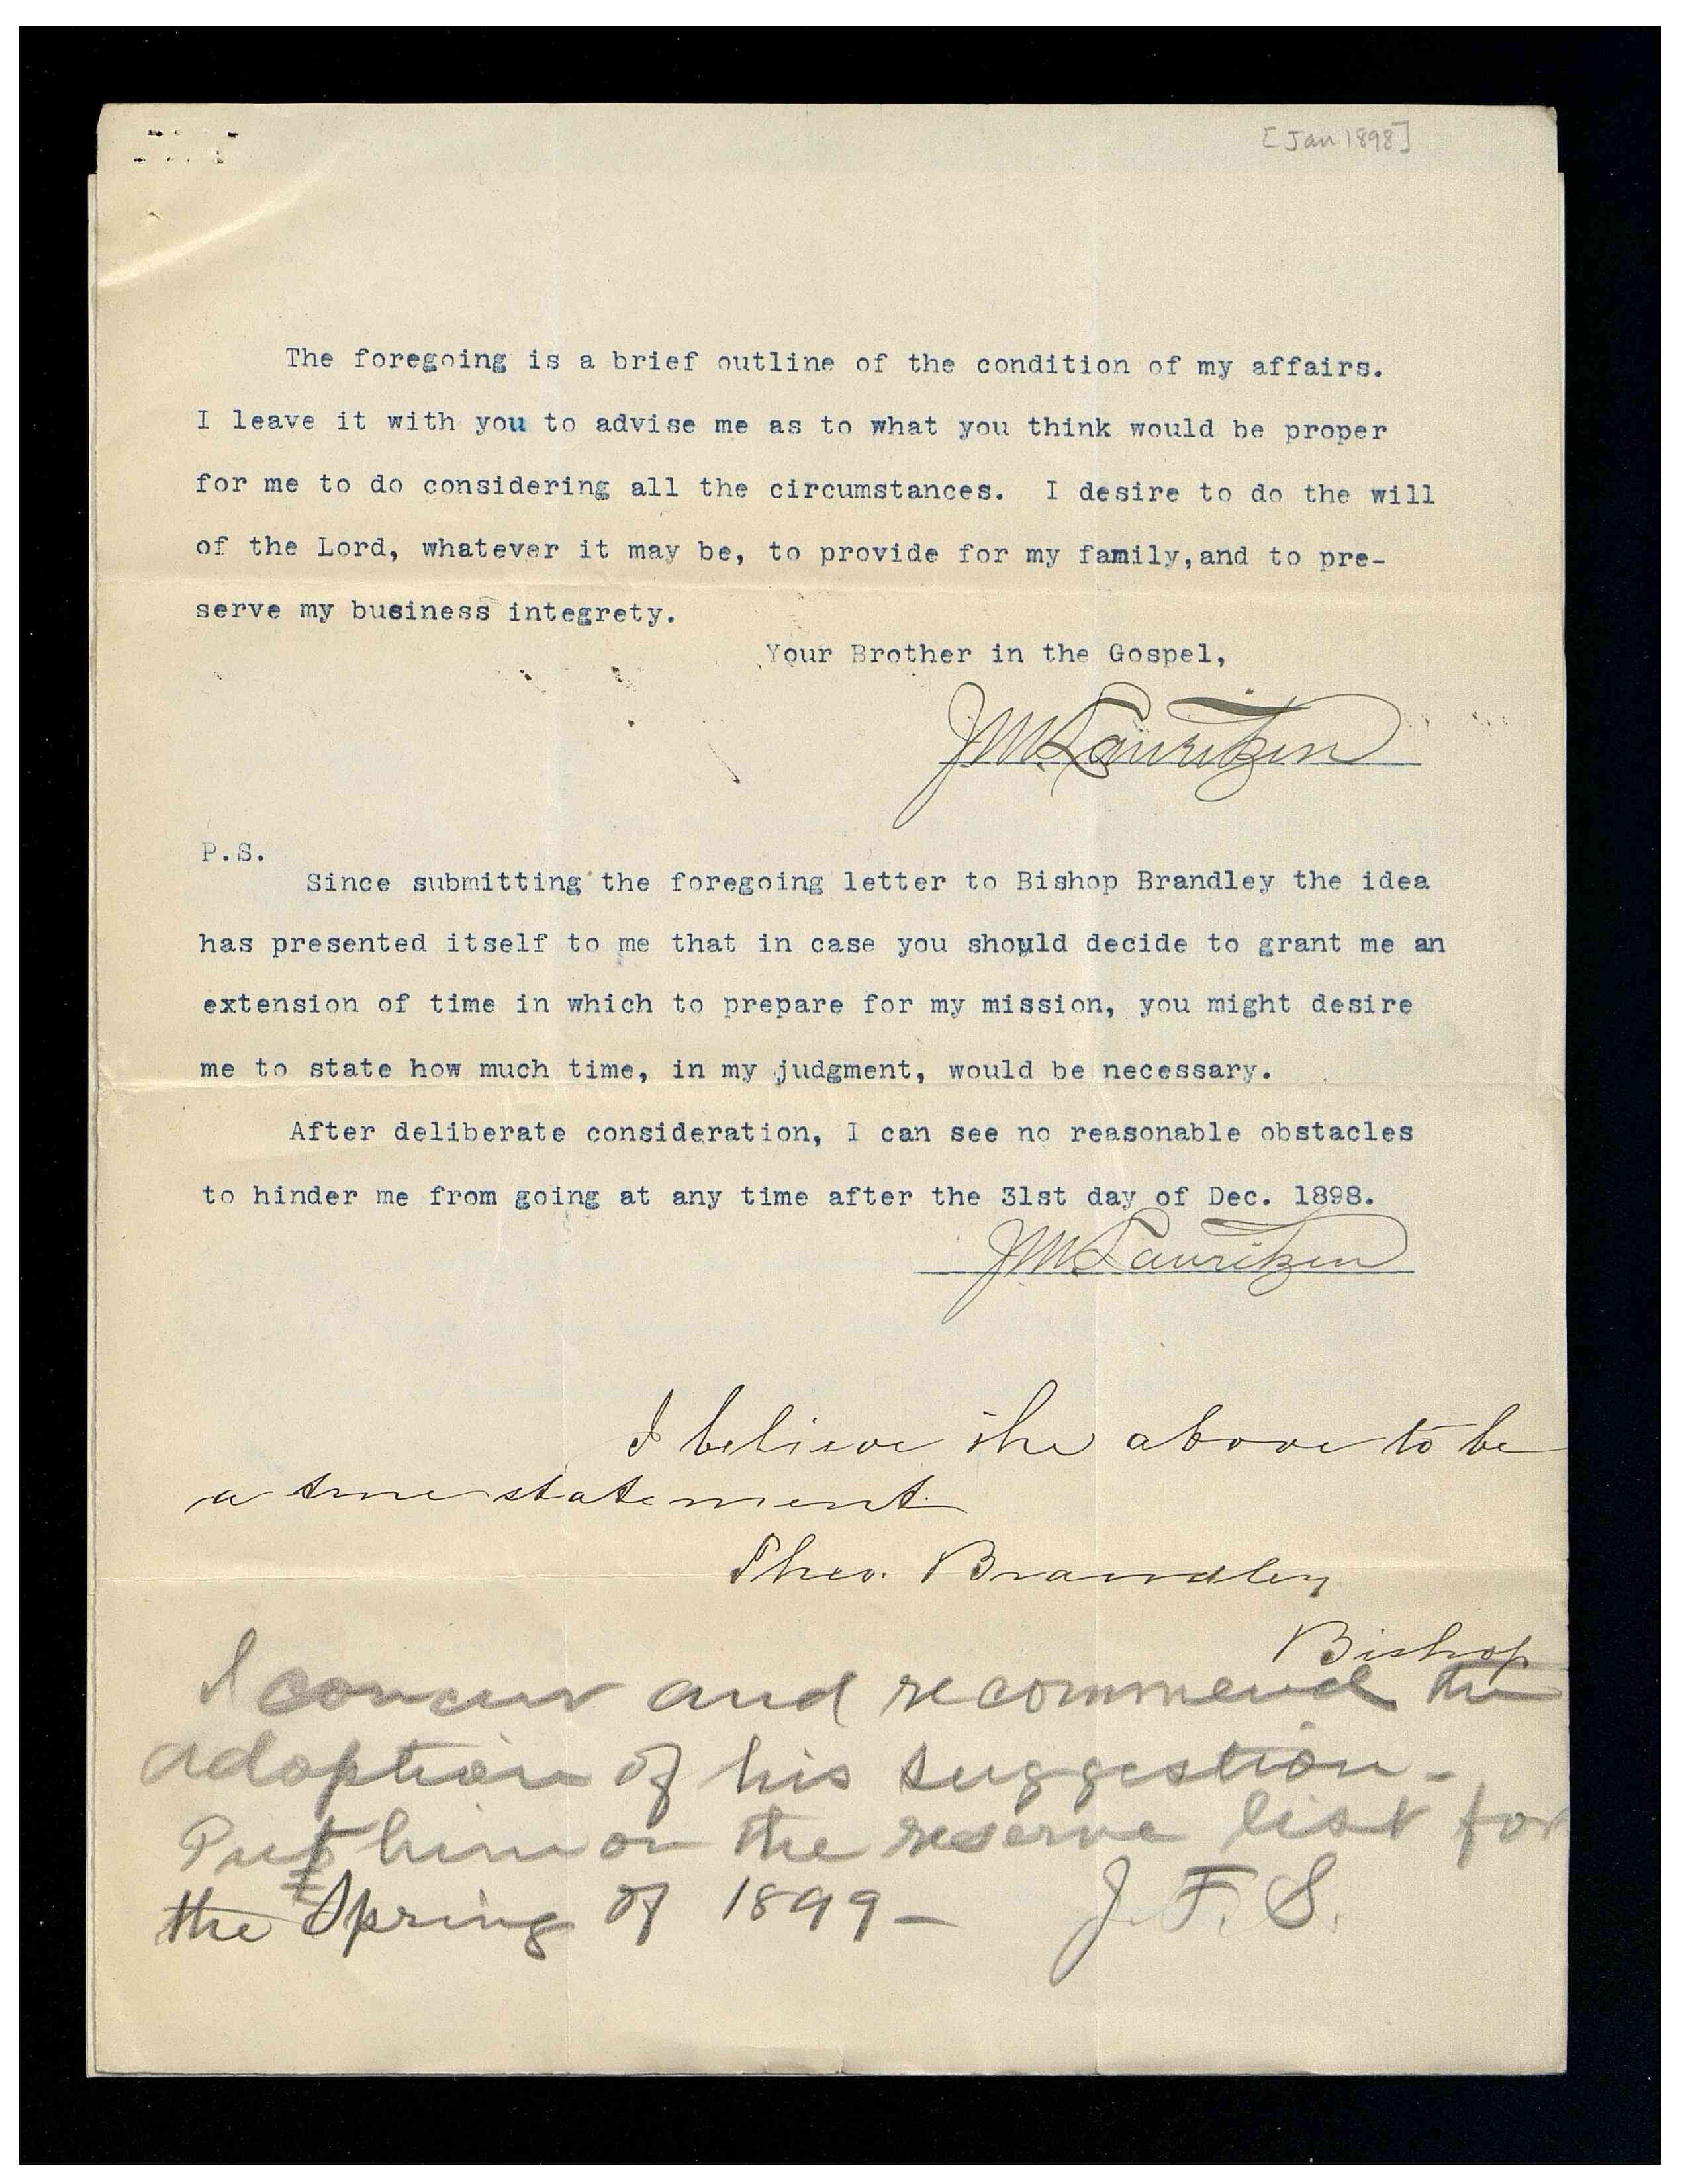 [Jan 1898]
The foregoing is a brief outline of the condition of my affairs.
I leave it with you to advise me as to what you think would be proper
for me to do considering all the circumstances. I desire to do the will
of the Lord, whatever it may be, to provide for my family,and to pre-
serve my business integrety.
Your Brother in the Gospel,
JM Lauritzen
P.S.
Since submitting the foregoing letter to Bishop Brandley the idea
has presented itself to me that in case you should decide to grant me an
extension of time in which to prepare for my mission, you might desire
me to state how much time, in my judgment, would be necessary.
After deliberate consideration, I can see no reasonable obstacles
to hinder me from going at any time after the 31st day of Dec. 1898.
JM Lauritzen
I believe the above to be
a true statement.
Theo. Brandley
Bishop
I concur and recommend the
adoption of his suggestion -
Put him on the reserve list for
the Spring of 1899 - J. F. S.